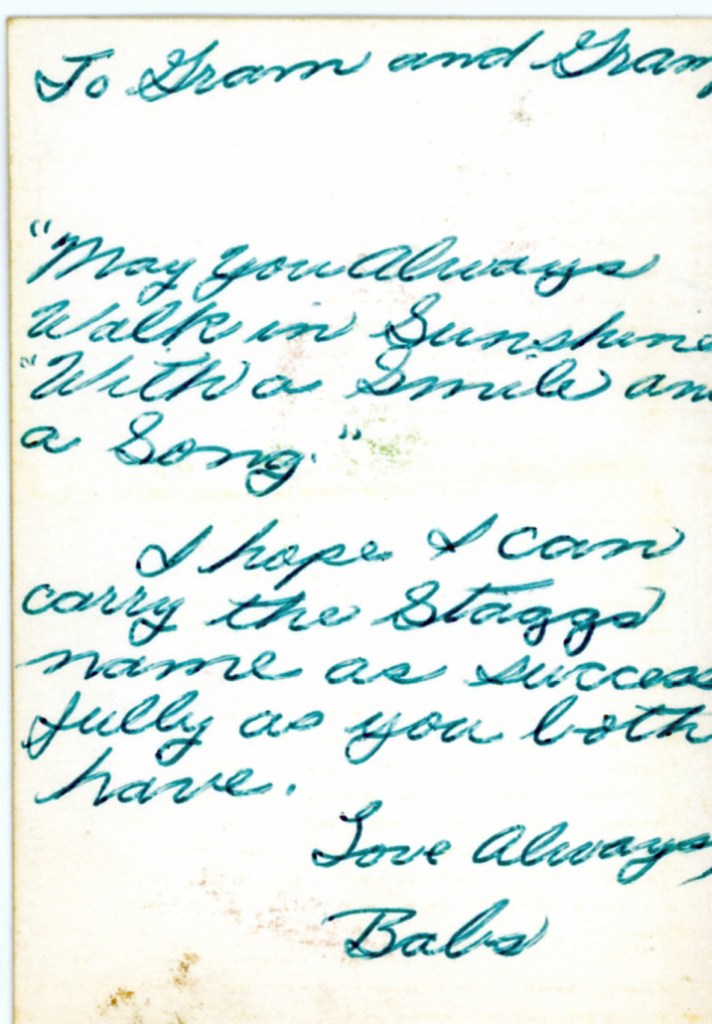 To Gram and Gram
"May You Always
Walk in Sunshine
"With a Smile an
a Song."
I hope I can
carry the Staggs
name as success
fully as you both
have.
Love Always,
Babs